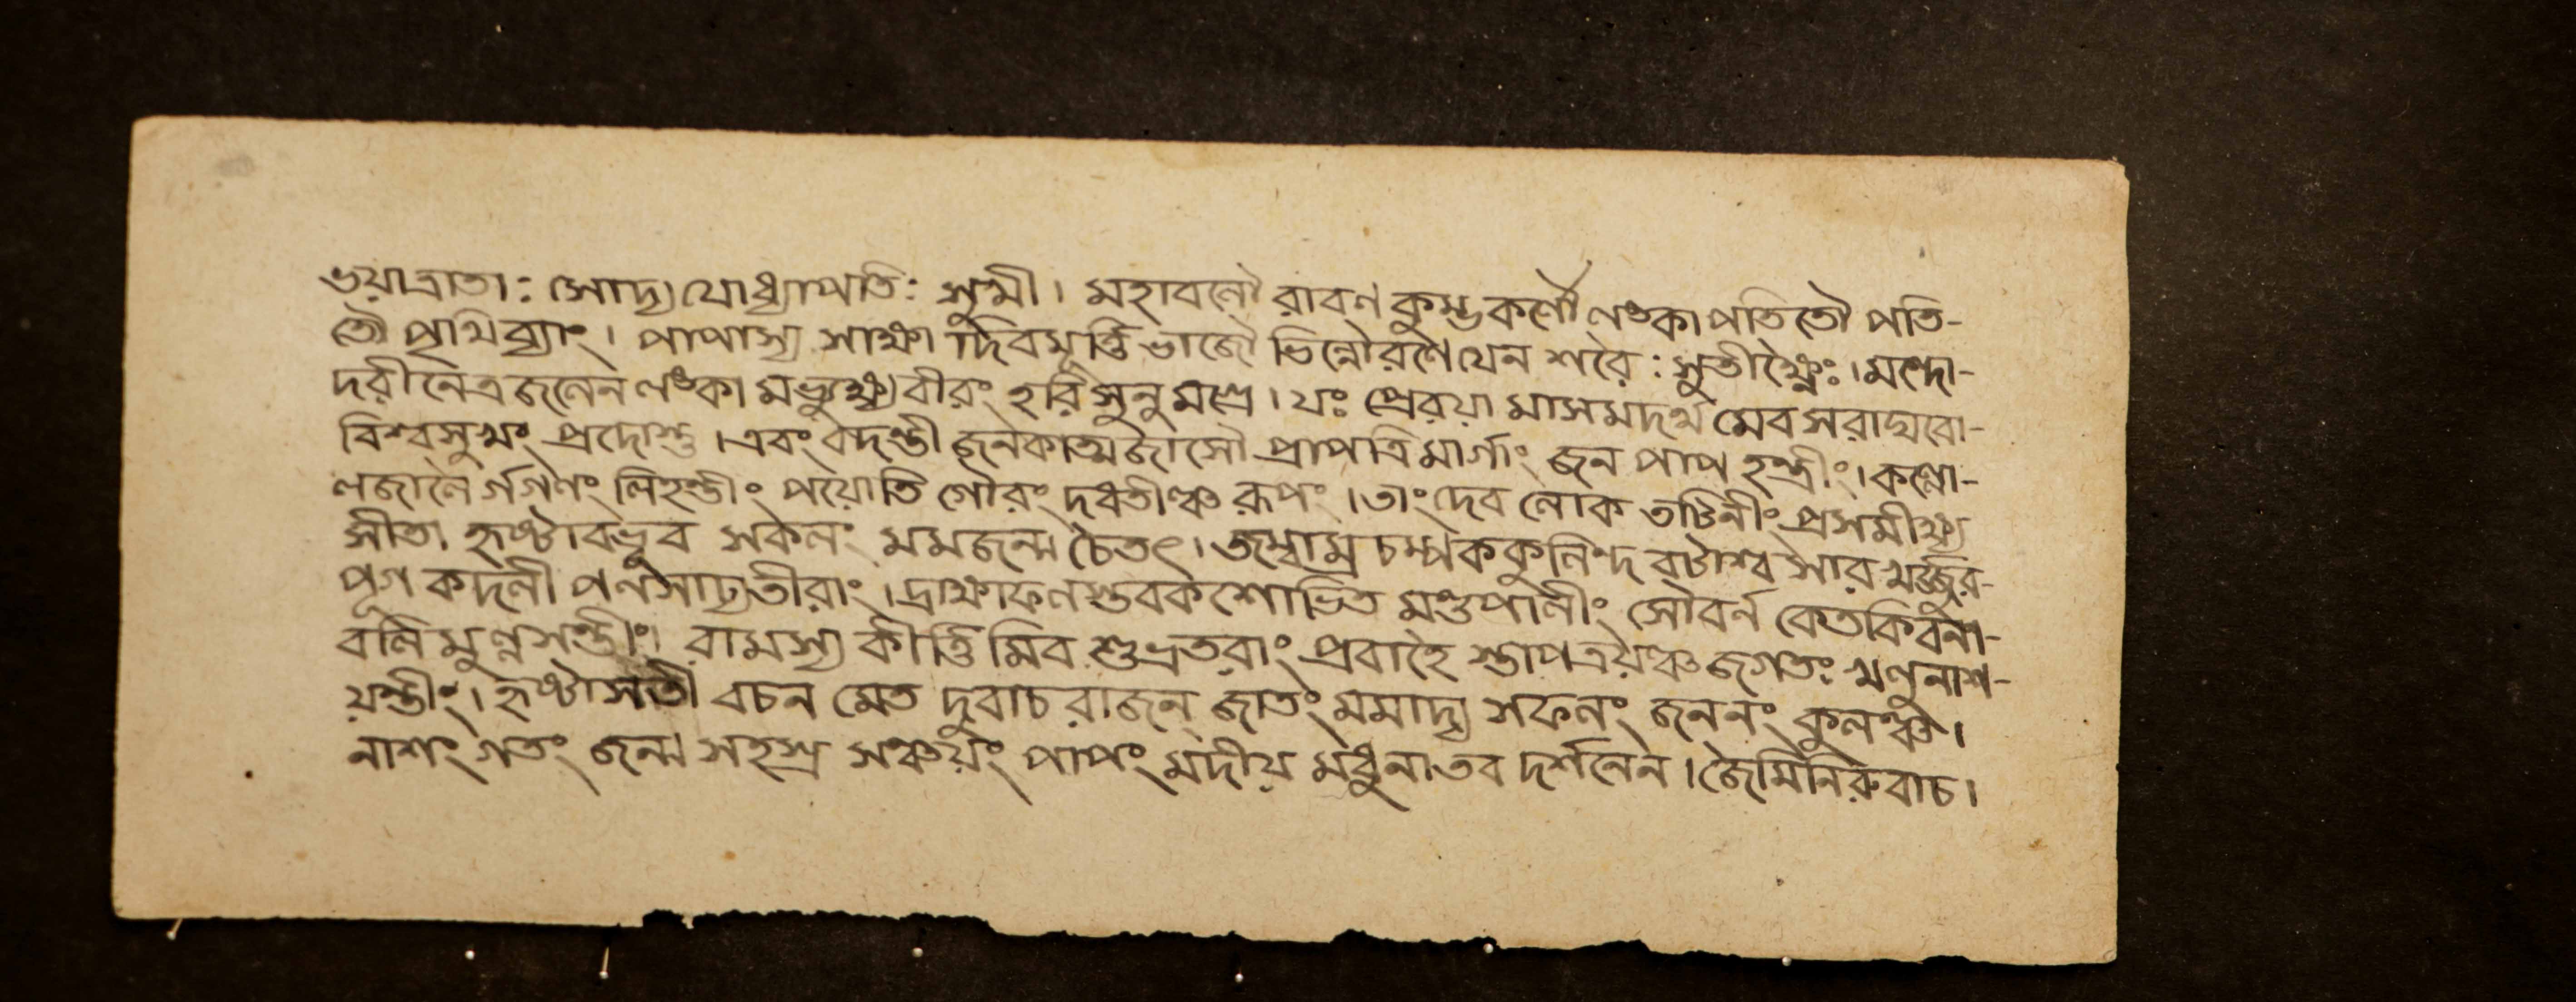 ভয়াত্রাতা: সোদ্য যোধ্যাপতি: সুখী। মহাবলৌ রাবণ কুম্ভকর্ণৌ লঙ্কাপতিতৌ পতি-
তৌ পৃথিব্যাং। পাপাস্য সাক্ষা দিবমূর্ত্তি ভাজৌ ভিন্নৌরণৈ যেন শরৈ: সুতীক্ষ্ণৈঃ। মন্দো-
দরীনেত্রজলেন লঙ্কা মভ্যুক্ষ্য বীরং হরিসুনু মগ্রে। যঃ প্রেরয়া মাসমদর্থ মেব সরাঘবো-
বিশ্বসুখং প্রদোস্তু। এবং বদন্তী জনকাত্মজাসৌ প্রাপত্রিমার্গাং জন পাপ হন্ত্রীং। কল্লো-
লজালৈ র্গগণং লিহন্তীং পয়োতি গৌরং দধতীঞ্চ রূপং। তাং দেব লোক তটিনীং প্রসমীক্ষ্য
সীতা হৃষ্টাবভূব সফলং মমজন্ম চৈতৎ। জম্বাম্র চম্পককুলিন্দ বটাশ্ব সার খর্জ্জুর-
পূগ কদলী পনসাঢ্যতীরাং। দ্রাক্ষাফলস্তবকশোভিত মণ্ডপালীং সৌবর্ন কেতকিবনা-
বলি মুল্লসন্তীং। রামস্য কীর্ত্তি মিব শুভ্রতরাং প্রবাহৈ স্তাপত্রয়ঞ্চ জগতঃ খলুনাশ-
য়ন্তীং। হৃষ্টাসতী বচন মেত দুবাচ রাজন্ জাতং মমাদ্য সফলং জননং কুলঞ্চ।
নাশং গতং জন্ম সহস্র সঞ্চয়ং পাপং মদীয় মধুনাতব দর্শনেন। জৈমিনিরুবাচ।